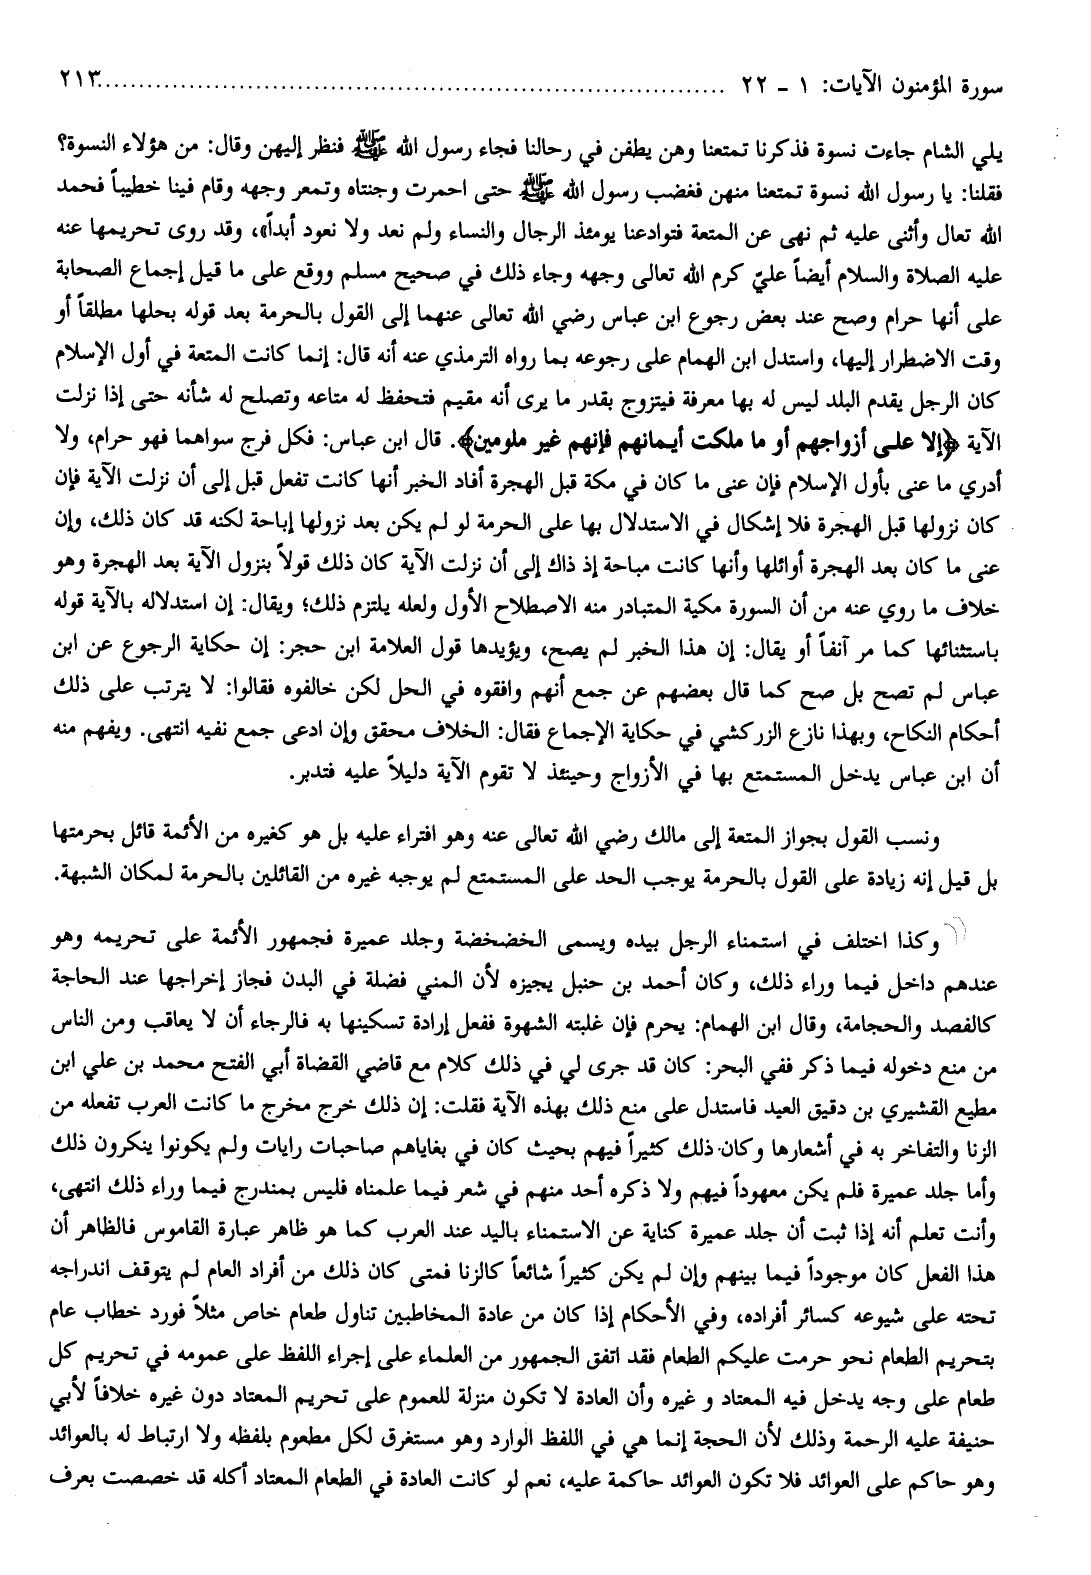 سورة المؤمنون الآيات: ١ - ٢٢ ........................................................................ ٢١٣
يلي الشام جاءت نسوة فذكرنا تمتعنا وهن يطفن في رحالنا فجاء رسول الله ﷺ فنظر إليهن وقال: من هؤلاء النسوة؟
فقلنا: يا رسول الله نسوة تمتعنا منهن فغضب رسول الله ﷺ حتى احمرت وجنتاه وتمعر وجهه وقام فينا خطيباً فحمد
الله تعال وأثنى عليه ثم نهى عن المتعة فتوادعنا يومئذ الرجال والنساء ولم نعد ولا نعود أبداً»، وقد روى تحريمها عنه
عليه الصلاة والسلام أيضاً عليّ كرم الله تعالى وجهه وجاء ذلك في صحيح مسلم ووقع على ما قيل إجماع الصحابة
على أنها حرام وصح عند بعض رجوع ابن عباس رضي الله تعالى عنهما إلى القول بالحرمة بعد قوله بحلها مطلقاً أو
وقت الاضطرار إليها، واستدل ابن الهمام على رجوعه بما رواه الترمذي عنه أنه قال: إنما كانت المتعة في أول الإسلام
كان الرجل يقدم البلد ليس له بها معرفة فيتزوج بقدر ما يرى أنه مقيم فتحفظ له متاعه وتصلح له شأنه حتى إذا نزلت
الآية ﴿إلا على أزواجهم أو ما ملكت أيمانهم فإنهم غير ملومين﴾. قال ابن عباس: فكل فرج سواهما فهو حرام، ولا
أدري ما عنى بأول الإسلام فإن عنى ما كان في مكة قبل الهجرة أفاد الخبر أنها كانت تفعل قبل إلى أن نزلت الآية فإن
كان نزولها قبل الهجرة فلا إشكال في الاستدلال بها على الحرمة لو لم يكن بعد نزولها إباحة لكنه قد كان ذلك، وإن
عنى ما كان بعد الهجرة أوائلها وأنها كانت مباحة إذ ذاك إلى أن نزلت الآية كان ذلك قولاً بنزول الآية بعد الهجرة وهو
خلاف ما روي عنه من أن السورة مكية المتبادر منه الاصطلاح الأول ولعله يلتزم ذلك؛ ويقال: إن استدلاله بالآية قوله
باستثنائها كما مر آنفاً أو يقال: إن هذا الخبر لم يصح، ويؤيدها قول العلامة ابن حجر: إن حكاية الرجوع عن ابن
عباس لم تصح بل صح كما قال بعضهم عن جمع أنهم وافقوه في الحل لكن خالفوه فقالوا: لا يترتب على ذلك
أحكام النكاح، وبهذا نازع الزركشي في حكاية الإجماع فقال: الخلاف محقق وإن ادعى جمع نفيه انتهى. ويفهم منه
أن ابن عباس يدخل المستمتع بها في الأزواج وحينئذ لا تقوم الآية دليلاً عليه فتدبر.
ونسب القول بجواز المتعة إلى مالك رضي الله تعالى عنه وهو افتراء عليه بل هو كغيره من الأئمة قائل بحرمتها
بل قيل إنه زيادة على القول بالحرمة يوجب الحد على المستمتع لم يوجبه غيره من القائلين بالحرمة لمكان الشبهة.
وكذا اختلف في استمناء الرجل بيده ويسمى الخضخضة وجلد عميرة فجمهور الأئمة على تحريمه وهو
عندهم داخل فيما وراء ذلك، وكان أحمد بن حنبل يجيزه لأن المني فضلة في البدن فجاز إخراجها عند الحاجة
كالفصد والحجامة، وقال ابن الهمام: يحرم فإن غلبته الشهوة ففعل إرادة تسكينها به فالرجاء أن لا يعاقب ومن الناس
من منع دخوله فيما ذكر ففي البحر: كان قد جرى لي في ذلك كلام مع قاضي القضاة أبي الفتح محمد بن علي ابن
مطيع القشيري بن دقيق العيد فاستدل على منع ذلك بهذه الآية فقلت: إن ذلك خرج مخرج ما كانت العرب تفعله من
الزنا والتفاخر به في أشعارها وكان ذلك كثيراً فيهم بحيث كان في بغاياهم صاحبات رايات ولم يكونوا ينكرون ذلك
وأما جلد عميرة فلم يكن معهوداً فيهم ولا ذكره أحد منهم في شعر فيما علمناه فليس بمندرج فيما وراء ذلك انتهى،
وأنت تعلم أنه إذا ثبت أن جلد عميرة كناية عن الاستمناء باليد عند العرب كما هو ظاهر عبارة القاموس فالظاهر أن
هذا الفعل كان موجوداً فيما بينهم وإن لم يكن كثيراً شائعاً كالزنا فمتى كان ذلك من أفراد العام لم يتوقف اندراجه
تحته على شيوعه كسائر أفراده، وفي الأحكام إذا كان من عادة المخاطبين تناول طعام خاص مثلاً فورد خطاب عام
بتحريم الطعام نحو حرمت عليكم الطعام فقد اتفق الجمهور من العلماء على إجراء اللفظ على عمومه في تحريم كل
طعام على وجه يدخل فيه المعتاد و غيره وأن العادة لا تكون منزلة للعموم على تحريم المعتاد دون غيره خلافاً لأبي
حنيفة عليه الرحمة وذلك لأن الحجة إنما هي في اللفظ الوارد وهو مستغرق لكل مطعوم بلفظه ولا ارتباط له بالعوائد
وهو حاكم على العوائد فلا تكون العوائد حاكمة عليه، نعم لو كانت العادة في الطعام المعتاد أكله قد خصصت بعرف